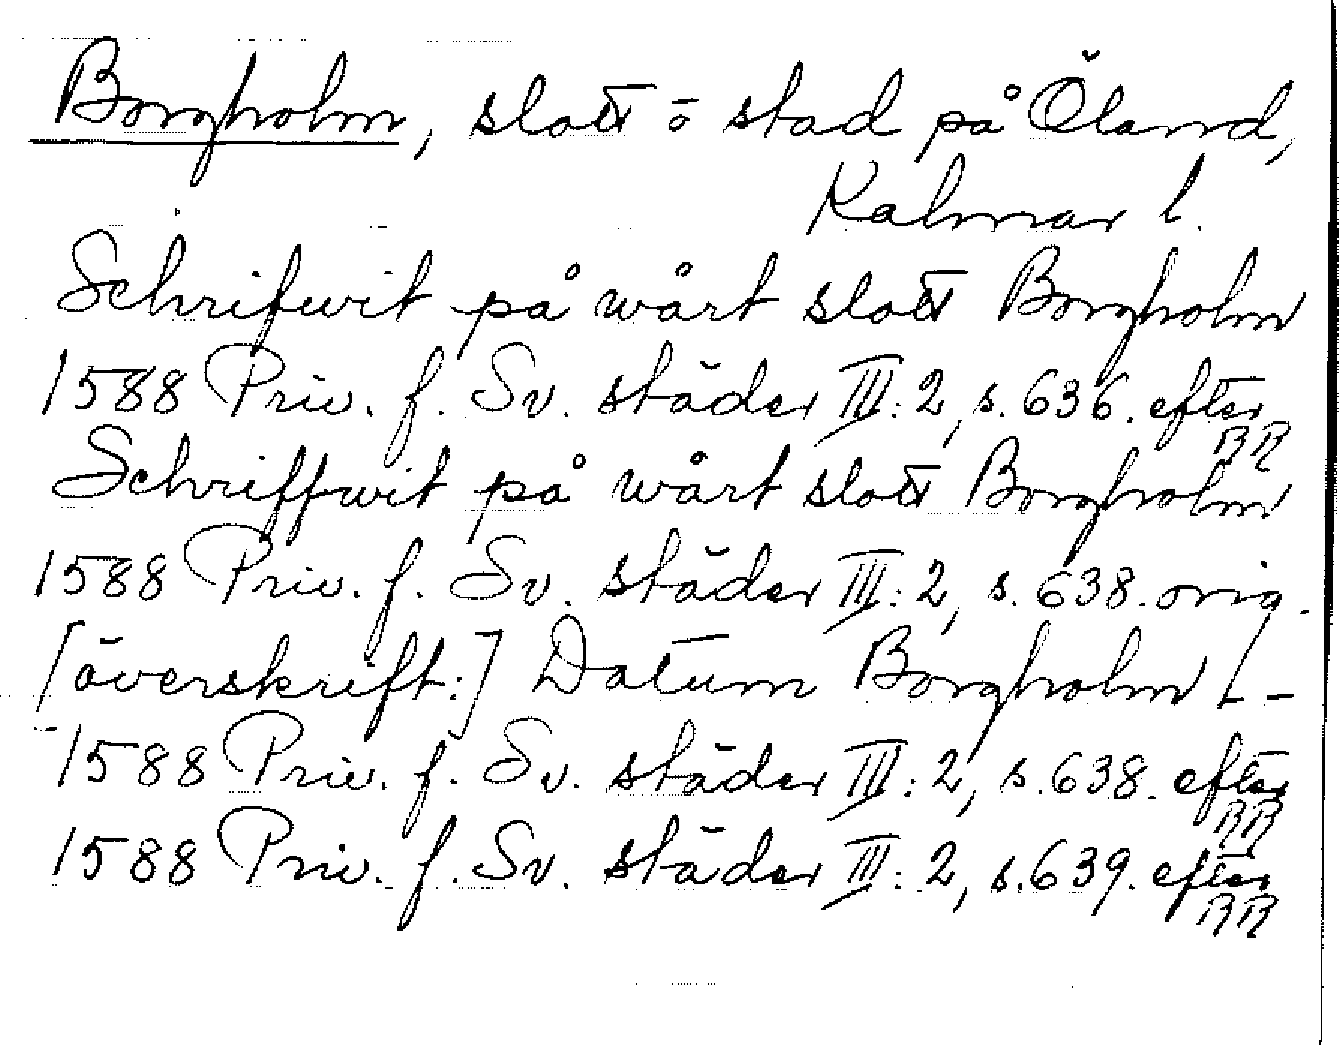 Borgholm, slott o stad på Öland,
Kalmar l.
Schrifwit på wårt slott Borgholm
1588 Priv. f. Sv. städer III:2, s. 636. efter
RR
Schriffwit på wårt slott Borgholm
1588 Priv. f. Sv. städer III:2, s. 638. orig.
[överskrift:] Datum Borgholm [-
1588 Priv. f. Sv. städer III:2, s. 638. efter
RR
1588 Priv. f. Sv. städer III:2, s. 639. efter
RR